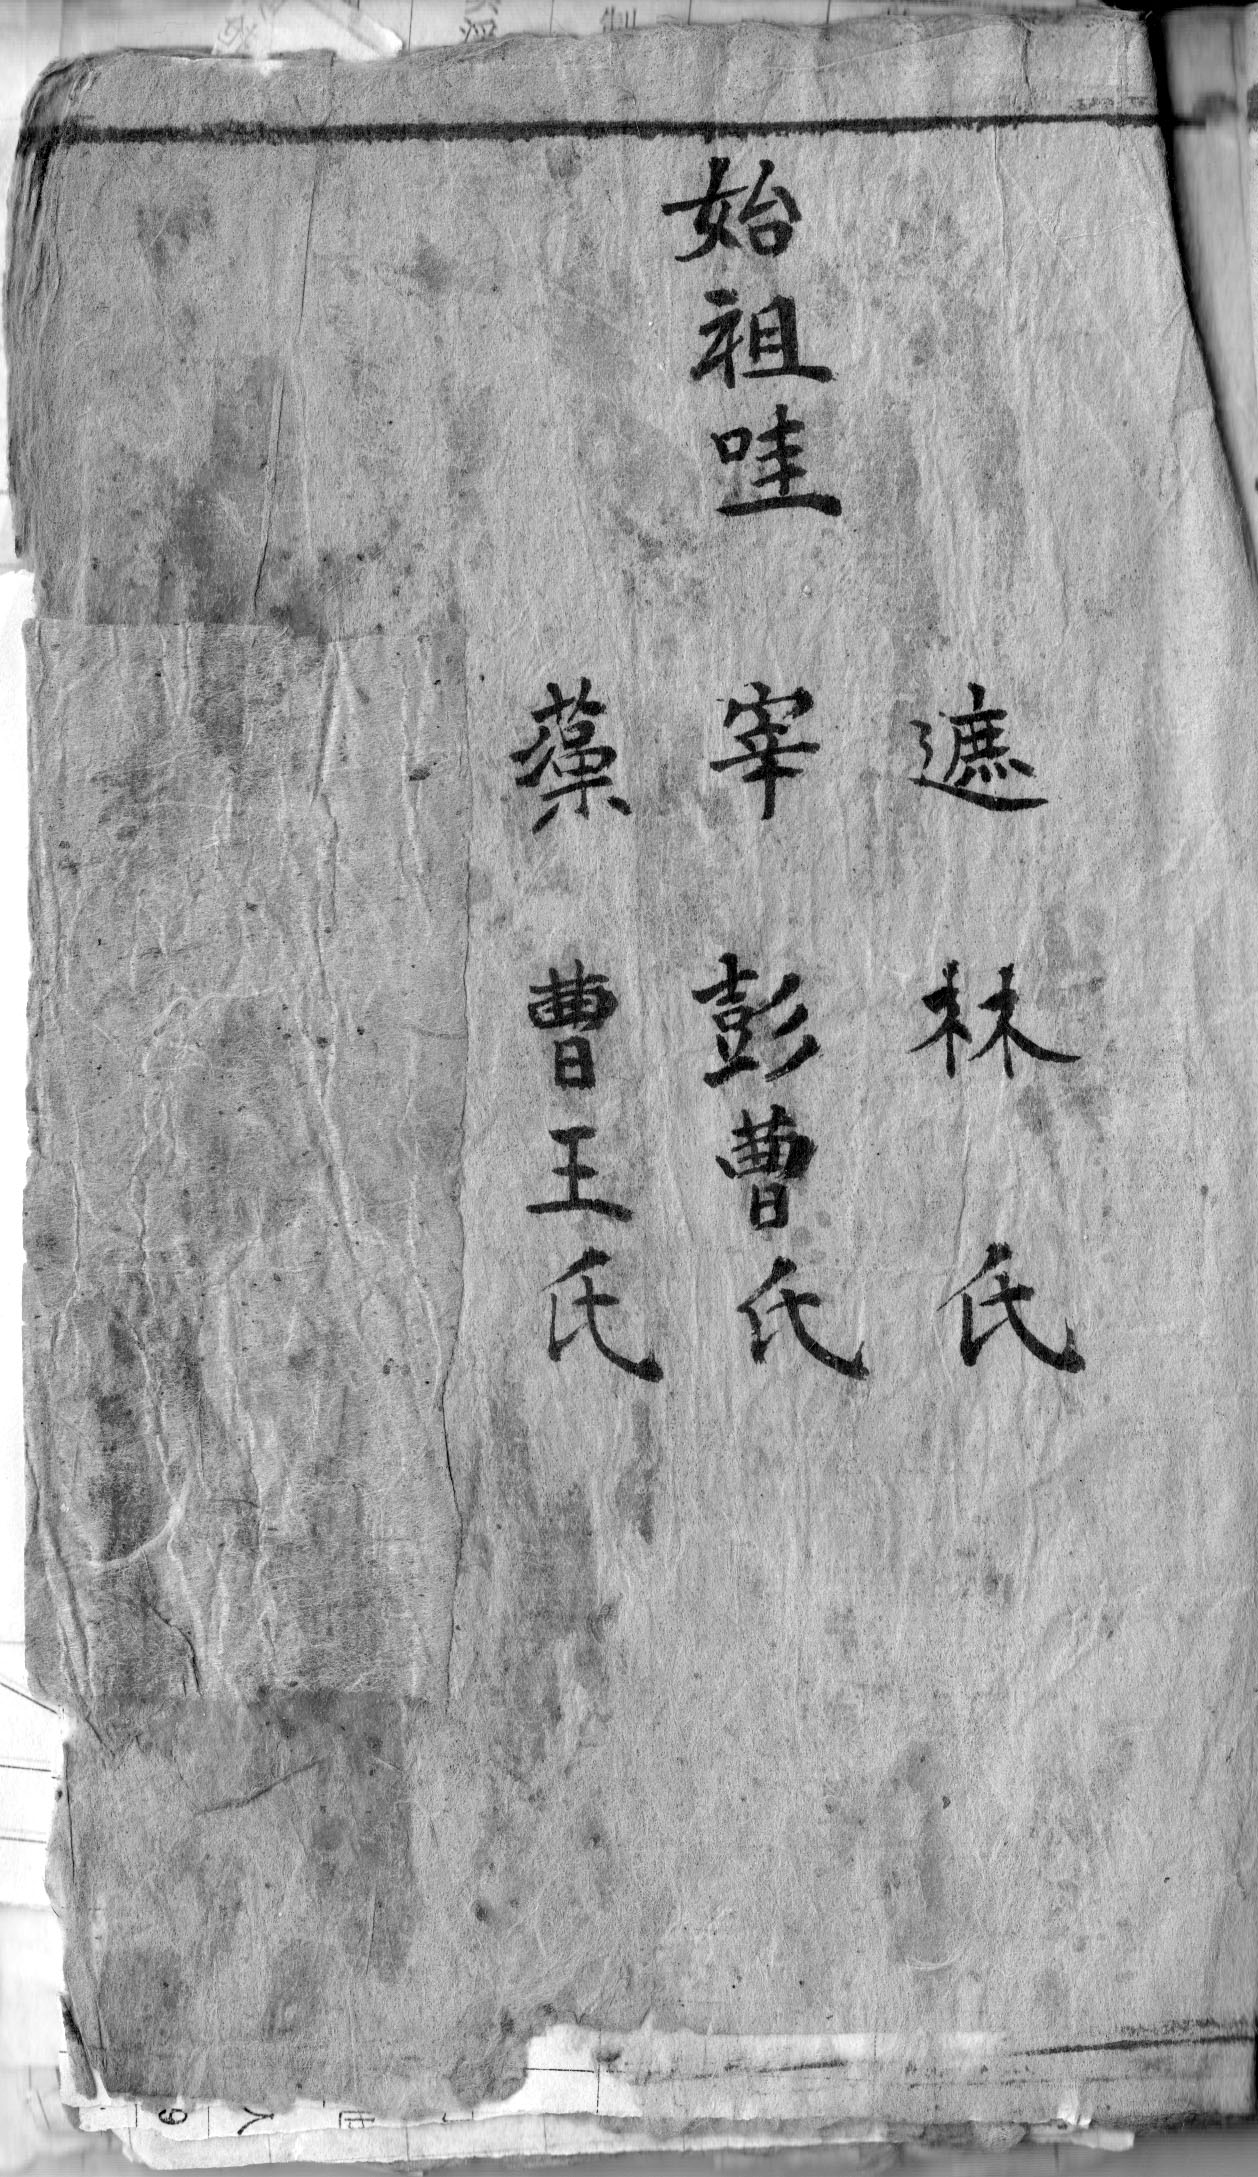 遮 林氏
始祖哇 宰 彭曹氏
藁 曹王氏